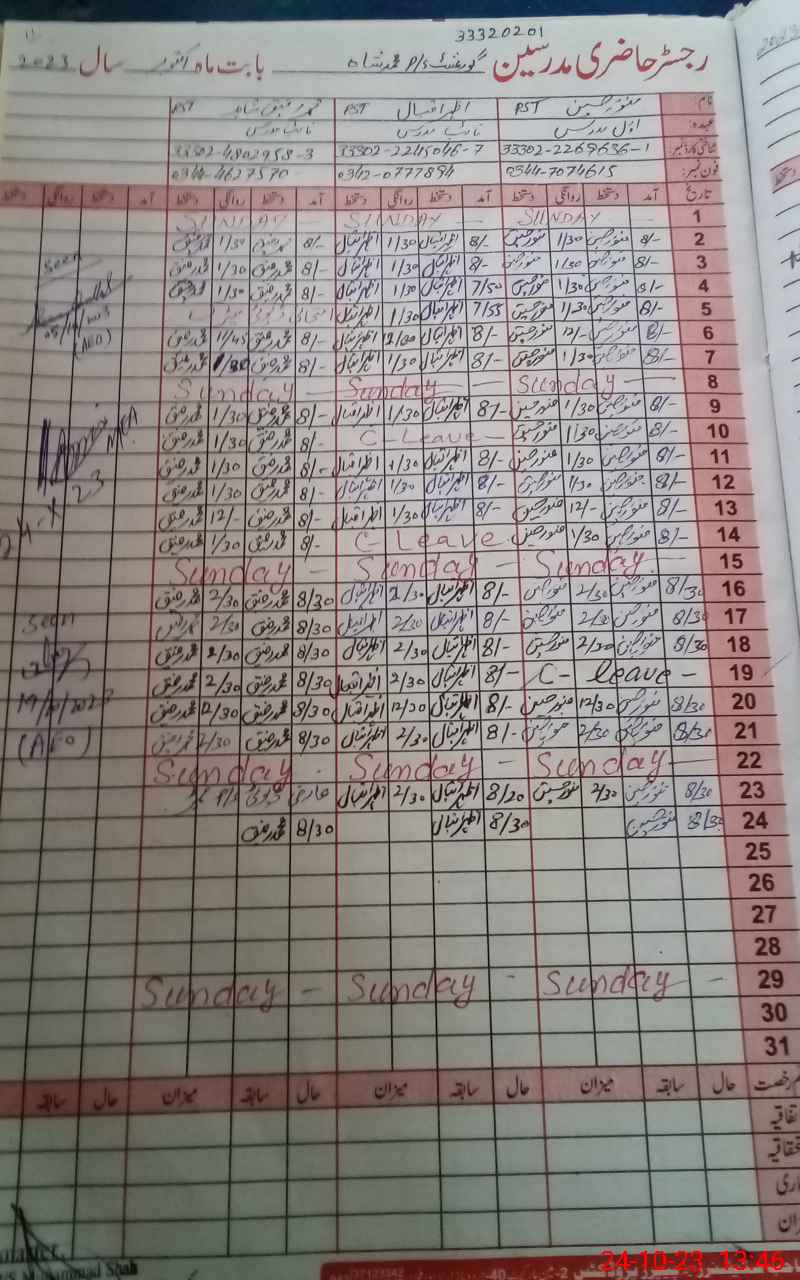 33320201
رجسٹر حاضری مدرسین گورنمنٹ P/S محمد شاہ بابت ماہ اکتوبر سال 2023
نام: منور حسین PST اظہر اقبال PST محمد رفیق شاہد PST
عہدہ: اول مدرس نائب مدرس نائب مدرس
شناختی کارڈ نمبر: 33302-2269636-1 33302-2245046-7 33302-4802958-3
فون نمبر: 0344-7074615 0342-0777894 0344-4627570
تاریخ آمد دستخط روانگی دستخط آمد دستخط روانگی دستخط آمد دستخط روانگی دستخط آمد دستخط روانگی دستخط
1 SUNDAY — SUNDAY — SUNDAY
2 8/- منور حسین 1/30 منور حسین 8/- اظہر اقبال 1/30 اظہر اقبال 8/- محمد رفیق 1/30 محمد رفیق
3 8/- منور حسین 1/30 منور حسین 8/- اظہر اقبال 1/30 اظہر اقبال 8/- محمد رفیق 1/30 محمد رفیق
seen
4 8/- منور حسین 1/30 منور حسین 7/50 اظہر اقبال 1/30 اظہر اقبال 8/- محمد رفیق 1/30 محمد رفیق
5 8/- منور حسین 1/30 منور حسین 7/55 اظہر اقبال 1/30 اظہر اقبال
(AEO)
6 8/- منور حسین 12/- منور حسین 8/- اظہر اقبال 12/00 اظہر اقبال 8/- محمد رفیق 11/45 محمد رفیق
7 8/- منور حسین 1/30 منور حسین 8/- اظہر اقبال 1/30 اظہر اقبال 8/- محمد رفیق 1/30 محمد رفیق
8 Sunday — Sunday — Sunday
9 8/- منور حسین 1/30 منور حسین 8/- اظہر اقبال 1/30 اظہر اقبال 8/- محمد رفیق 1/30 محمد رفیق
10 8/- منور حسین 1/30 منور حسین C-Leave - 8/- محمد رفیق 1/30 محمد رفیق
11 8/- منور حسین 1/30 منور حسین 8/- اظہر اقبال 1/30 اظہر اقبال 8/- محمد رفیق 1/30 محمد رفیق
MEA
24-X-23
12 8/- منور حسین 1/30 منور حسین 8/- اظہر اقبال 1/30 اظہر اقبال 8/- محمد رفیق 1/30 محمد رفیق
13 8/- منور حسین 12/- منور حسین 8/- اظہر اقبال 1/30 اظہر اقبال 8/- محمد رفیق 12/- محمد رفیق
14 8/- منور حسین 1/30 منور حسین C-Leave 8/- محمد رفیق 1/30 محمد رفیق
15 Sunday - Sunday - Sunday
16 8/30 منور حسین 2/30 منور حسین 8/- اظہر اقبال 2/30 اظہر اقبال 8/30 محمد رفیق 2/30 محمد رفیق
17 8/30 منور حسین 2/30 منور حسین 8/- اظہر اقبال 2/30 اظہر اقبال 8/30 محمد رفیق 2/30 محمد رفیق
seen
18 8/30 منور حسین 2/30 منور حسین 8/- اظہر اقبال 2/30 اظہر اقبال 8/30 محمد رفیق 2/30 محمد رفیق
19 C- leave - 8/- اظہر اقبال 2/30 اظہر اقبال 8/30 محمد رفیق 2/30 محمد رفیق
19/10/2023
20 8/30 منور حسین 12/30 منور حسین 8/- اظہر اقبال 12/30 اظہر اقبال 8/30 محمد رفیق 12/30 محمد رفیق
(AEO)
21 8/30 منور حسین 2/30 منور حسین 8/- اظہر اقبال 2/30 اظہر اقبال 8/30 محمد رفیق 2/30 محمد رفیق
22 Sunday - Sunday - Sunday
23 8/30 منور حسین 2/30 منور حسین 8/20 اظہر اقبال 2/30 اظہر اقبال
24 8/30 منور حسین 8/30 اظہر اقبال 8/30 محمد رفیق
25
26
27
28
29 Sunday - Sunday - Sunday -
30
31
رخصت حال سابقہ میزان حال سابقہ میزان حال سابقہ میزان حال سابقہ
Muhammad Shah
24-10-23 13:46